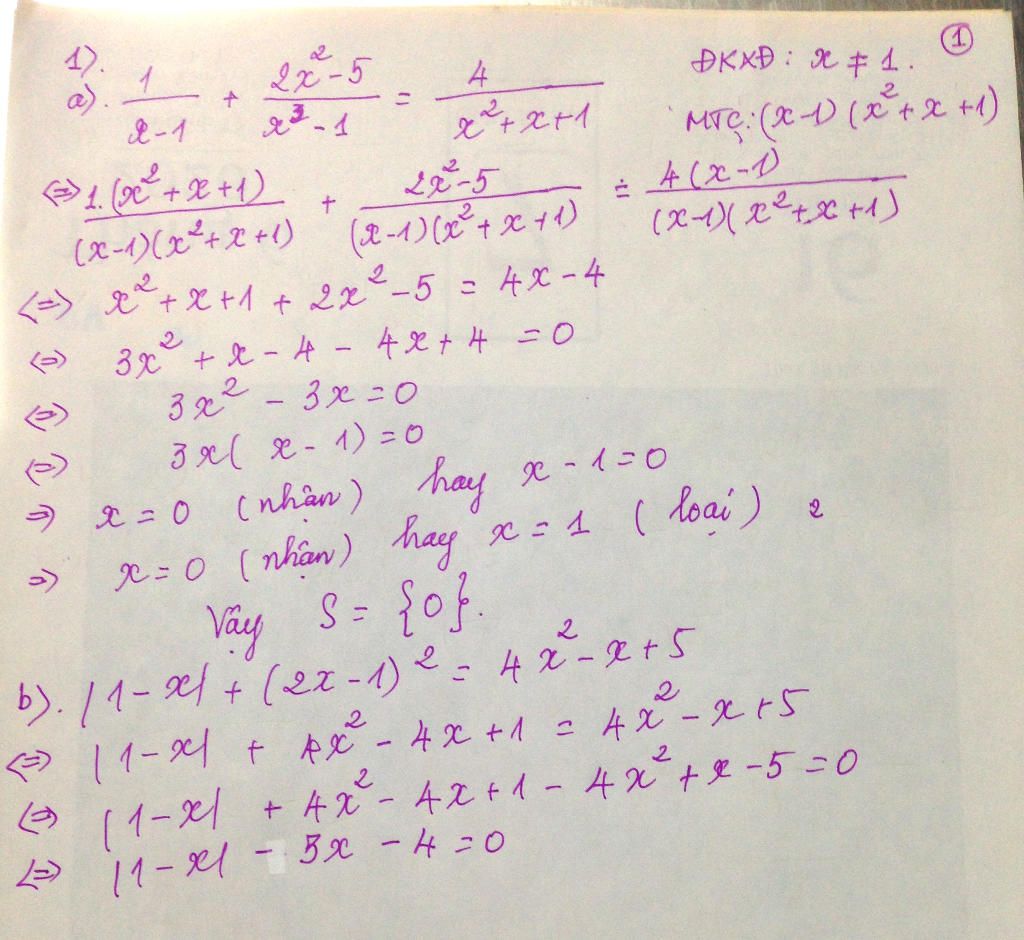 ①
1).
a). 1/(x-1) + (2x²-5)/(x³-1) = 4/(x²+x+1) ĐKXĐ: x ≠ 1.
MTC: (x-1)(x²+x+1)
⇔ 1.(x²+x+1)/((x-1)(x²+x+1)) + (2x²-5)/((x-1)(x²+x+1)) = 4(x-1)/((x-1)(x²+x+1))
⇔ x²+x+1 + 2x²-5 = 4x-4
⇔ 3x² + x - 4 - 4x + 4 = 0
⇔ 3x² - 3x = 0
⇔ 3x( x - 1) = 0
⇒ x = 0 (nhận) hay x - 1 = 0
⇒ x = 0 (nhận) hay x = 1 ( loại) 2
Vậy S = {0}.
b). |1-x| + (2x-1)² = 4x²-x+5
⇔ |1-x| + 4x² - 4x + 1 = 4x² - x + 5
⇔ |1-x| + 4x² - 4x + 1 - 4x² + x - 5 = 0
⇔ |1-x| - 3x - 4 = 0